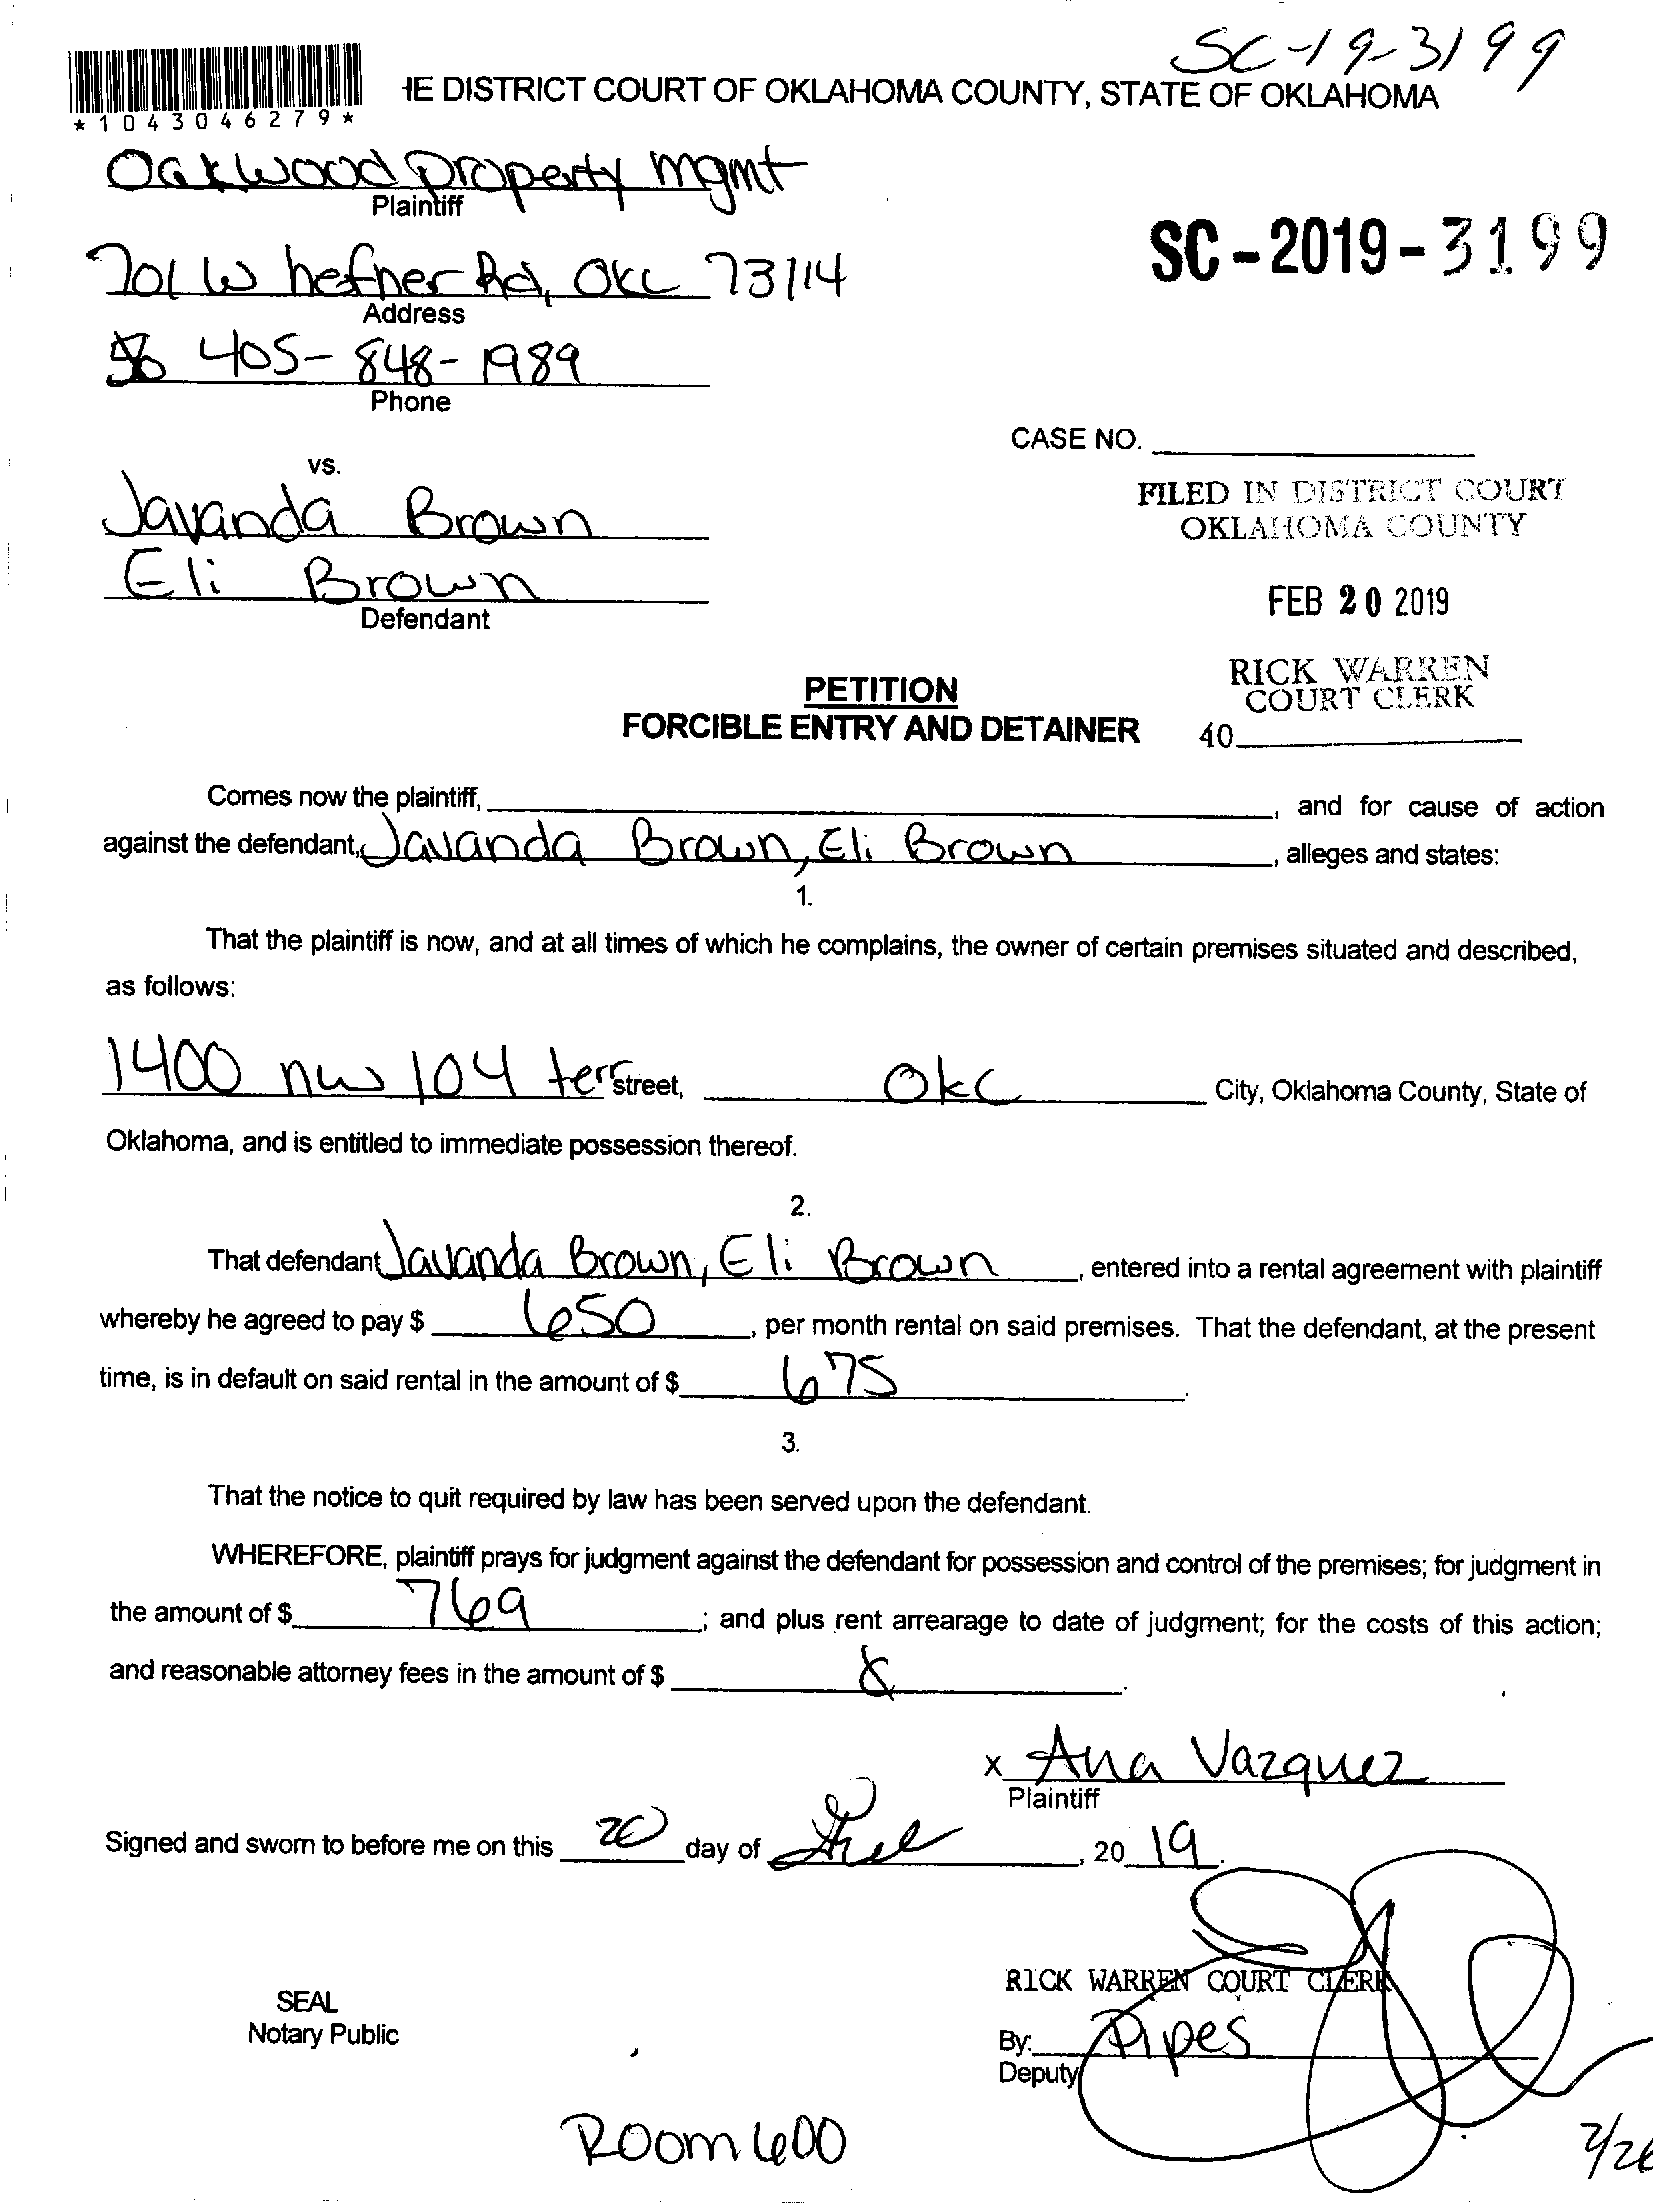 SC-19-3199
HE DISTRICT COURT OF OKLAHOMA COUNTY, STATE OF OKLAHOMA
*1043046279*
Oakwood Property mgmt
Plaintiff
701 W hefner Rd, OKC 73114
Address
SC-2019-3199
405-848-1989
Phone
CASE NO.
vs.
Javanda Brown
Eli Brown
Defendant
FILED IN DISTRICT COURT
OKLAHOMA COUNTY
FEB 20 2019
RICK WARREN
COURT CLERK
40
PETITION
FORCIBLE ENTRY AND DETAINER
Comes now the plaintiff, , and for cause of action
against the defendant, Javanda Brown, Eli Brown, alleges and states:
1.
That the plaintiff is now, and at all times of which he complains, the owner of certain premises situated and described,
as follows:
1400 nw 104 ter street, OKC City, Oklahoma County, State of
Oklahoma, and is entitled to immediate possession thereof.
2.
That defendant Javanda Brown, Eli Brown, entered into a rental agreement with plaintiff
whereby he agreed to pay $ 650, per month rental on said premises. That the defendant, at the present
time, is in default on said rental in the amount of $ 675.
3.
That the notice to quit required by law has been served upon the defendant.
WHEREFORE, plaintiff prays for judgment against the defendant for possession and control of the premises; for judgment in
the amount of $ 769; and plus rent arrearage to date of judgment; for the costs of this action;
and reasonable attorney fees in the amount of $ .
x Ana Vazquez
Plaintiff
Signed and sworn to before me on this 20 day of , 20 19.
RICK WARREN COURT CLERK
SEAL
Notary Public
By: Pipes
Deputy
Room 600